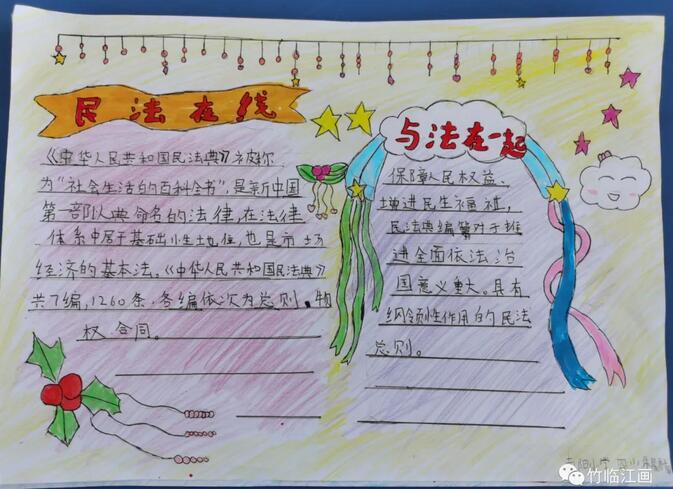 民法在线
《中华人民共和国民法典》被称
为"社会生活的百科全书",是新中国
第一部以典命名的法律,在法律
体系中居于基础性地位,也是市场
经济的基本法。《中华人民共和国民法典》
共7编,1260条,各编依次为总则、物
权、合同。
与法在一起
保障人民权益、
增进民生福祉,
民法典编纂对于推
进全面依法治
国意义重大。具有
纲领性作用的民法
总则。
小学
竹临江画